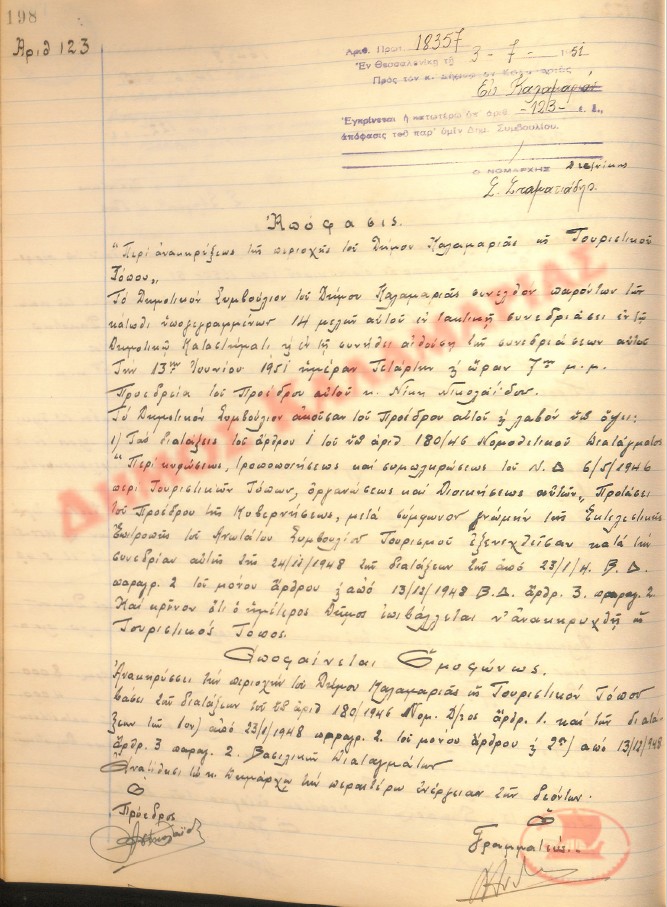 198
Αριθ 123
Αριθ. Πρωτ. 18357
Ἐν Θεσσαλονίκῃ τῇ 3-7-1951
Πρὸς τὸν κ. Δήμαρχον Καλαμαριᾶς
Εἰς Καλαμαριάν
Ἐγκρίνεται ἡ κατωτέρω ὑπ' ἀριθ. -123- ἐ. ἔ.,
ἀπόφασις τοῦ παρ' ὑμῖν Δημ. Συμβουλίου.
Ο ΝΟΜΑΡΧΗΣ
Σ. Σταματιάδης
Ἀπόφασις.
"Περὶ ἀνακηρύξεως τῆς περιοχῆς τοῦ Δήμου Καλαμαριᾶς ὡς Τουριστικοῦ
Τόπου"
Τὸ Δημοτικὸν Συμβούλιον τοῦ Δήμου Καλαμαριᾶς συνελθὸν παρόντων τῶν
κάτωθι ὑπογεγραμμένων 14 μελῶν αὐτοῦ ἐν τακτικῇ συνεδριάσει ἐν τῷ
Δημοτικῷ Καταστήματι ἐν τῇ συνήθει αἰθούσῃ τῶν συνεδριάσεων αὐτοῦ
Τὴν 13ην Ἰουνίου 1951 ἡμέραν Τετάρτην ὥραν 7ην μ.μ.
Προεδρείᾳ τοῦ Προέδρου αὐτοῦ κ. Νίκη Νικολαΐδου.
Τὸ Δημοτικὸν Συμβούλιον ἀκοῦσαν τοῦ Προέδρου αὐτοῦ λαβὸν ὑπ' ὄψει:
1) Τὰς διατάξεις τοῦ ἄρθρου 1 τοῦ ὑπ' ἀριθ 180/46 Νομοθετικοῦ Διατάγματος
"Περὶ κυρώσεως, τροποποιήσεως καὶ συμπληρώσεως τοῦ Ν.Δ 6/5/1946
περὶ Τουριστικῶν Τόπων, ὀργανώσεως καὶ Διοικήσεως αὐτῶν" Προτάσει
τοῦ Προέδρου τῆς Κυβερνήσεως, μετὰ σύμφωνον γνώμην τῆς Ἐκτελεστικῆς
Ἐπιτροπῆς τοῦ Ἀνωτάτου Συμβουλίου Τουρισμοῦ ἐξενεχθεῖσαν κατὰ τὴν
συνεδρίαν αὐτῆς τῆς 24/12/1948 τῆς διατάξεων τῆς ἀπὸ 23/1/4. Β.Δ.
παραγρ. 2 τοῦ μόνου ἄρθρου ἀπὸ 13/12/1948 Β.Δ. ἄρθρ. 3. παραγ. 2.
Καὶ κρῖνον ὅτι ὁ ἡμέτερος Δῆμος ἐπιβάλλεται ν' ἀνακηρυχθῇ ὡς
Τουριστικὸς Τόπος.
Ἀποφαίνεται Ὁμοφώνως.
Ἀνακηρύσσει τὴν περιοχὴν τοῦ Δήμου Καλαμαριᾶς ὡς Τουριστικὸν Τόπον
βάσει τῶν διατάξεων τοῦ ὑπ' ἀριθ 180/1946 Νομ. Δ/τος ἄρθρ. 1. καὶ τῶν διατά-
ξεων τῶν 1ον) ἀπὸ 23/1/1948 παραγρ. 2. τοῦ μόνου ἄρθρου 2ον) ἀπὸ 13/12/1948
ἄρθρ. 3 παραγ. 2. Βασιλικῶν Διαταγμάτων
Ἀνατίθησι τῷ κ. Δημάρχῳ τὴν περαιτέρω ἐνέργειαν τῶν δεόντων.
Ὁ
Πρόεδρος
Ὁ
Γραμματεύς
ΔΗΜΟΣ ΚΑΛΑΜΑΡΙΑΣ